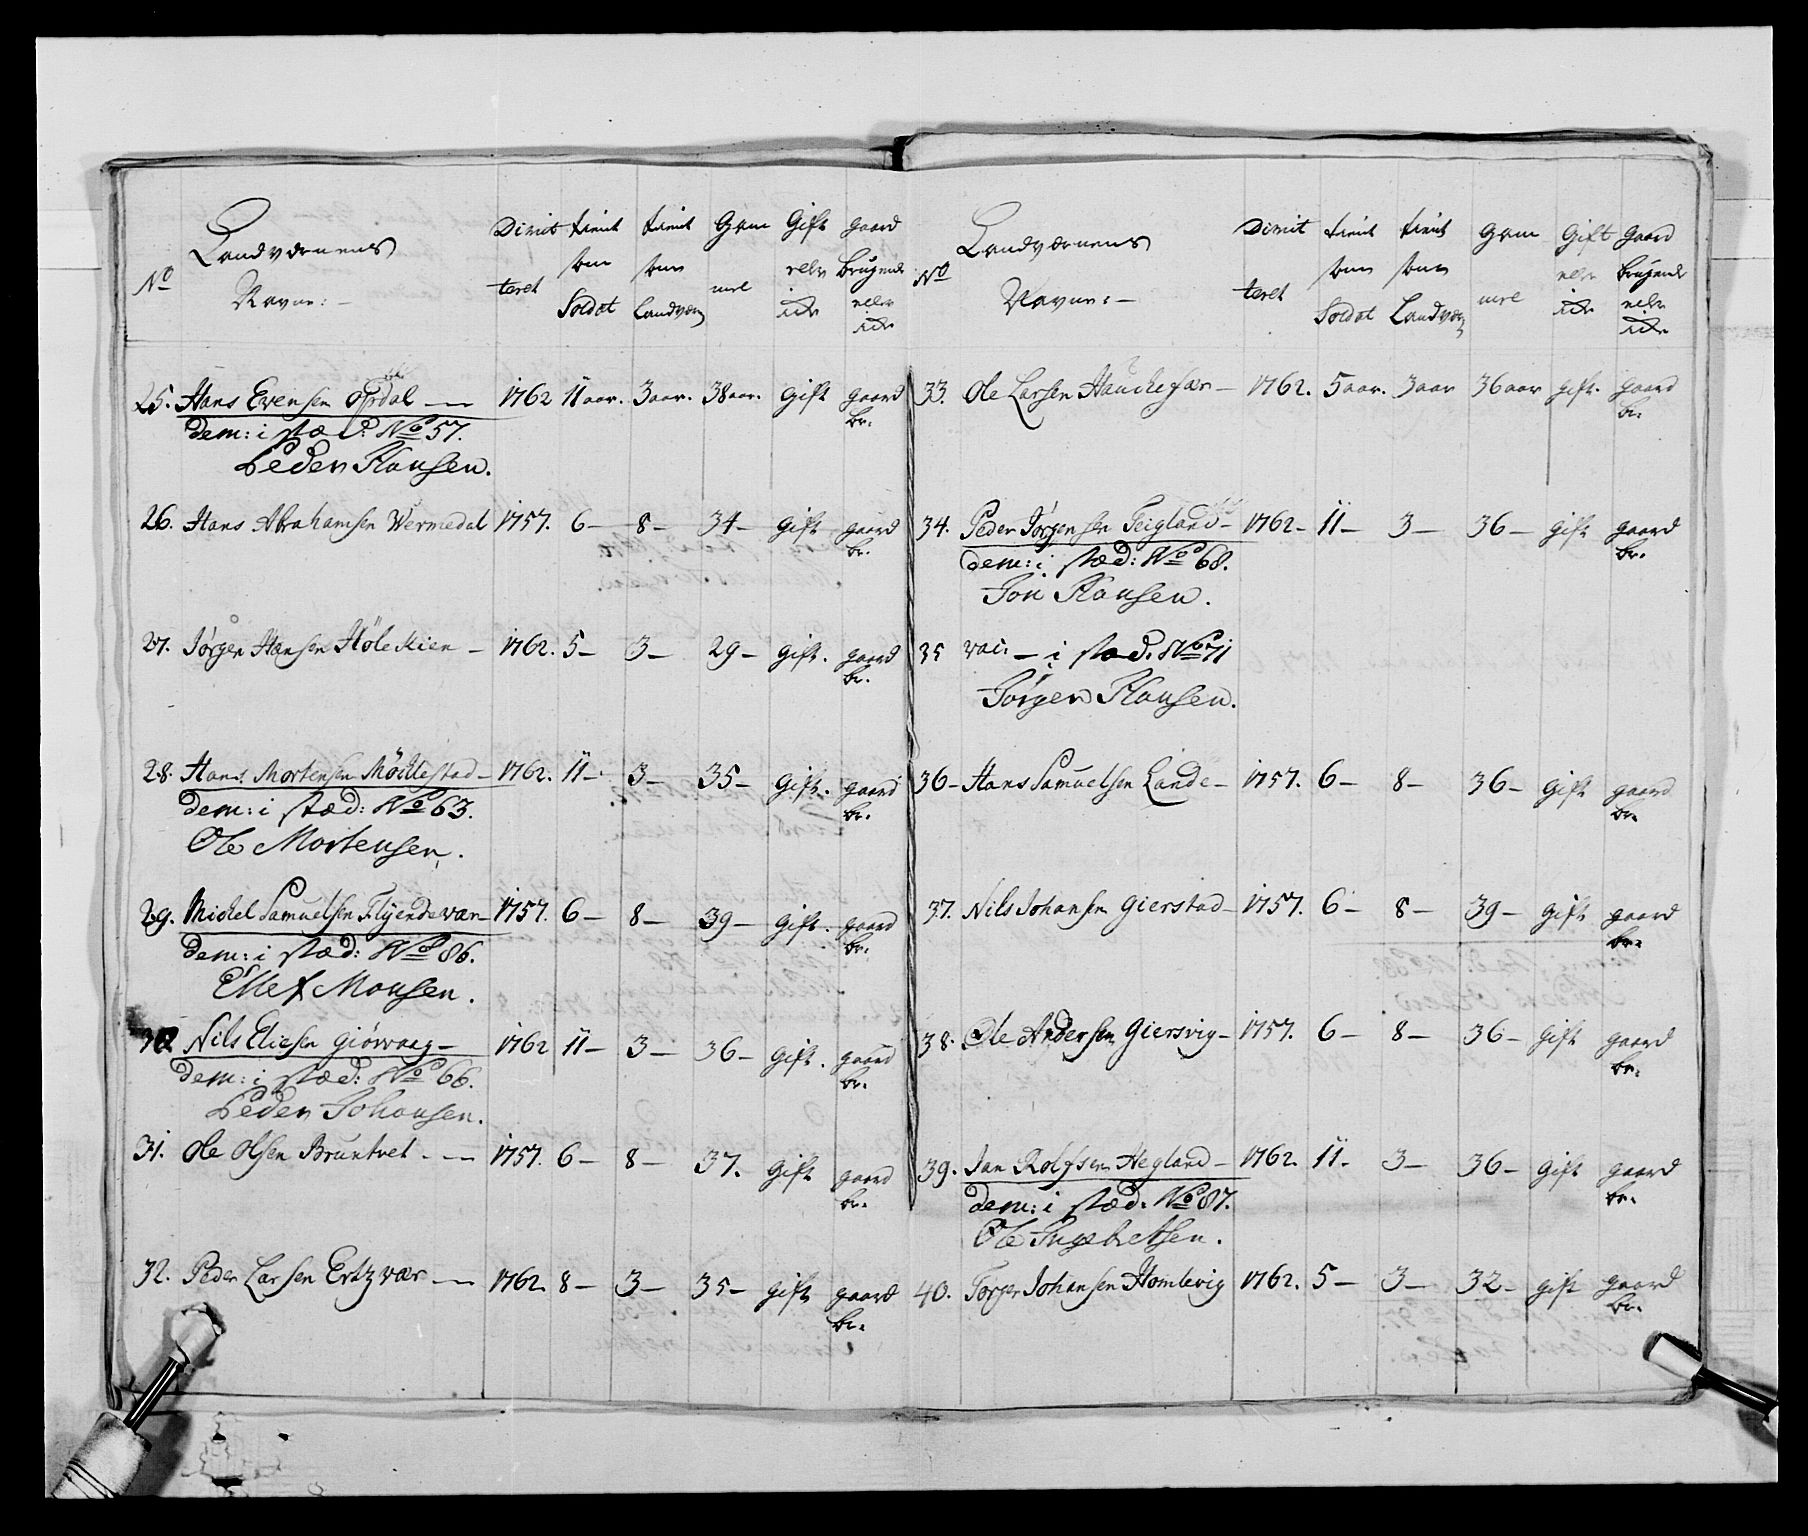 No Landværnens Navne: — Dimitteret tient som Soldat tient som Landværn Gammel Gift eller icke gaard brugende eller icke
25. Hans Evensen Opdal — 1762 11 aar. 3 aar. 38 aar. Gift gaard br:
dem: i stæd: No 57.
Peder Hansen.
26. Hans Abrahamsen Wermedal 1757. 6 — 8 — 34 — Gift gaard br:
27. Jørgen Hansen Høleckien — 1762. 5 — 3 — 29 — Gift. gaard br:
28. Hans Mortensen Möcklestad — 1762. 11 — 3 — 35 — Gift. gaard br:
dem: i stæd: No 63.
Ole Mortensen.
29. Michel Samuelsen Flyendevær — 1757. 6 — 8 — 39 — Gift. gaard br:
dem: i stæd: No 86.
Ellef Monsen.
30 Nils Eliesen Giörvaag — 1762 11 — 3 — 36 — Gift. gaard br:
dem: i stæd: No 66.
Peder Johansen.
31. Ole Olsen Bruntvet — 1757. 6 — 8 — 37. Gift gaard br:
32. Peder Larsen Ertzvær — 1762. 8 — 3 — 35 — Gift gaard br:
No Landværnens Navne: — Dimitteret tient som Soldat tient som Landværn Gammel Gift eller icke Gaard brugende eller icke
33. Ole Larsen Hauckesær — 1762. 5 aar. 3 aar 36 aar gift. gaard br:
34. Peder Jørgensen Teigland — 1762 — 11 — 3 — 36 — gift gaard br:
dem: i stæd: No 68.
Jon Hansen.
35 vac: — i stæd: No 71
Jørgen Hansen.
36 — Hans Samuelsen Lande — 1757. 6 — 8 — 36 — Gift gaard br:
37. Nils Johansen Gierstad — 1757. 6 — 8 — 39 — Gift gaard br:
38. Ole Andersen Giersvig — 1757. 6 — 8 — 36 — Gift gaard br:
39. Jan Rolfsen Hegland — 1762. 11 — 3 — 36 — Gift gaard br:
dem: i stæd: No 87.
Ole Ingebretsen.
40. Torger Johansen Homlevig 1762. 5 — 3 — 32 — gift gaard br: